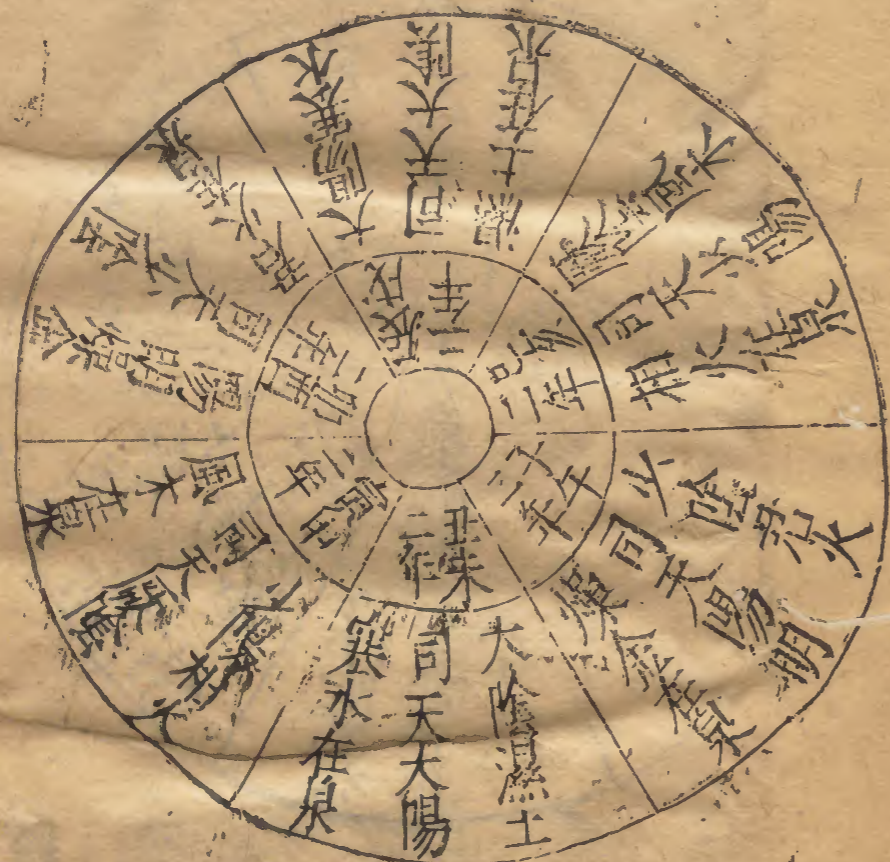 子午
二年
少陰君火
司天陽明
燥金在泉
丑未
二年
大陰濕土
司天大陽
寒水在泉
寅申
二年
少陽相火
司天厥陰
風木在泉
卯酉
二年
陽明燥金
司天少陰
君火在泉
辰戌
二年
大陽寒水
司天大陰
濕土在泉
巳亥
二年
厥陰風木
司天少陽
相火在泉